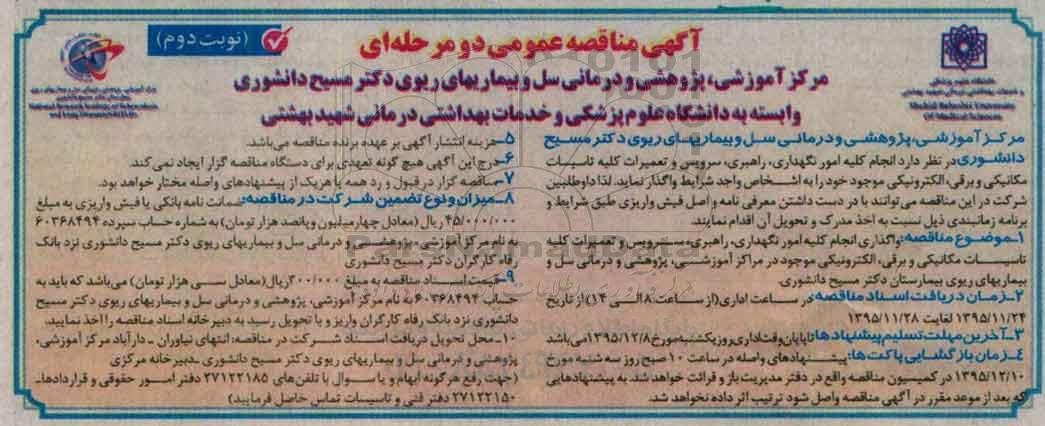 آگهی مناقصه عمومی دو مرحله‌ای
(نوبت دوم)
مرکز آموزشی، پژوهشی و درمانی سل و بیماریهای ریوی دکتر مسیح دانشوری
وابسته به دانشگاه علوم پزشکی و خدمات بهداشتی درمانی شهید بهشتی
Shahid Beheshti University
Of Medical Sciences
مرکز آموزشی، پژوهشی و درمانی سل و بیماریهای ریوی دکتر مسیح
دانشوری در نظر دارد انجام کلیه امور نگهداری، راهبری، سرویس و تعمیرات کلیه تاسیسات
مکانیکی و برقی، الکترونیکی موجود خود را به اشخاص واجد شرایط واگذار نماید. لذا داوطلبین
شرکت در این مناقصه می‌توانند با در دست داشتن معرفی نامه و اصل فیش واریزی طبق شرایط و
برنامه زمانبندی ذیل نسبت به اخذ مدرک و تحویل آن اقدام نمایند.
۱ـ موضوع مناقصه: واگذاری انجام کلیه امور نگهداری، راهبری، سرویس و تعمیرات کلیه
تاسیسات مکانیکی و برقی، الکترونیکی موجود در مراکز آموزشی، پژوهشی و درمانی سل و
بیماریهای ریوی بیمارستان دکتر مسیح دانشوری.
۲ـ زمان دریافت اسناد مناقصه در ساعت اداری (از ساعت ۸ الی ۱۴) از تاریخ
۱۳۹۵/۱۱/۲۴ لغایت ۱۳۹۵/۱۱/۲۸
۳ـ آخرین مهلت تسلیم پیشنهادها: تا پایان وقت اداری روز یکشنبه مورخ ۱۳۹۵/۱۲/۸ می‌باشد
۴ـ زمان بازگشایی پاکت‌ها: پیشنهادهای واصله در ساعت ۱۰ صبح روز سه شنبه مورخ
۱۳۹۵/۱۲/۱۰ در کمیسیون مناقصه واقع در دفتر مدیریت باز و قرائت خواهد شد. به پیشنهادهایی
که بعد از موعد مقرر در آگهی مناقصه واصل شود ترتیب اثر داده نخواهد شد.
۵ـ هزینه انتشار آگهی بر عهده برنده مناقصه می‌باشد.
۶ـ درج این آگهی هیچ گونه تعهدی برای دستگاه مناقصه گزار ایجاد نمی‌کند.
۷ـ مناقصه گزار در قبول و رد همه یا هر یک از پیشنهادهای واصله مختار خواهد بود.
۸ـ میزان و نوع تضمین شرکت در مناقصه: ضمانت نامه بانکی یا فیش واریزی به مبلغ
۴۵/۰۰۰/۰۰۰ ریال (معادل چهار میلیون و پانصد هزار تومان) به شماره حساب سپرده ۶۰۳۶۸۴۹۴
به نام مرکز آموزشی، پژوهشی و درمانی سل و بیماریهای ریوی دکتر مسیح دانشوری نزد بانک
رفاه کارگران دکتر مسیح دانشوری
۹ـ قیمت اسناد مناقصه به مبلغ ۳۰۰/۰۰۰ ریال (معادل سی هزار تومان) می‌باشد که باید به
حساب ۶۰۳۶۸۴۹۴ به نام مرکز آموزشی، پژوهشی و درمانی سل و بیماریهای ریوی دکتر مسیح
دانشوری نزد بانک رفاه کارگران واریز و با تحویل رسید به دبیرخانه اسناد مناقصه را اخذ نمایید.
۱۰ـ محل تحویل دریافت اسناد شرکت در مناقصه: انتهای نیاوران ـ دارآباد مرکز آموزشی،
پژوهشی و درمانی سل و بیماریهای ریوی دکتر مسیح دانشوری ـ دبیرخانه مرکزی
(جهت رفع هر گونه ابهام و یا سوال با تلفن‌های ۲۷۱۲۲۱۸۵ دفتر امور حقوقی و قراردادها ـ
۲۷۱۲۲۱۵۰ دفتر فنی و تاسیسات تماس حاصل فرمایید)